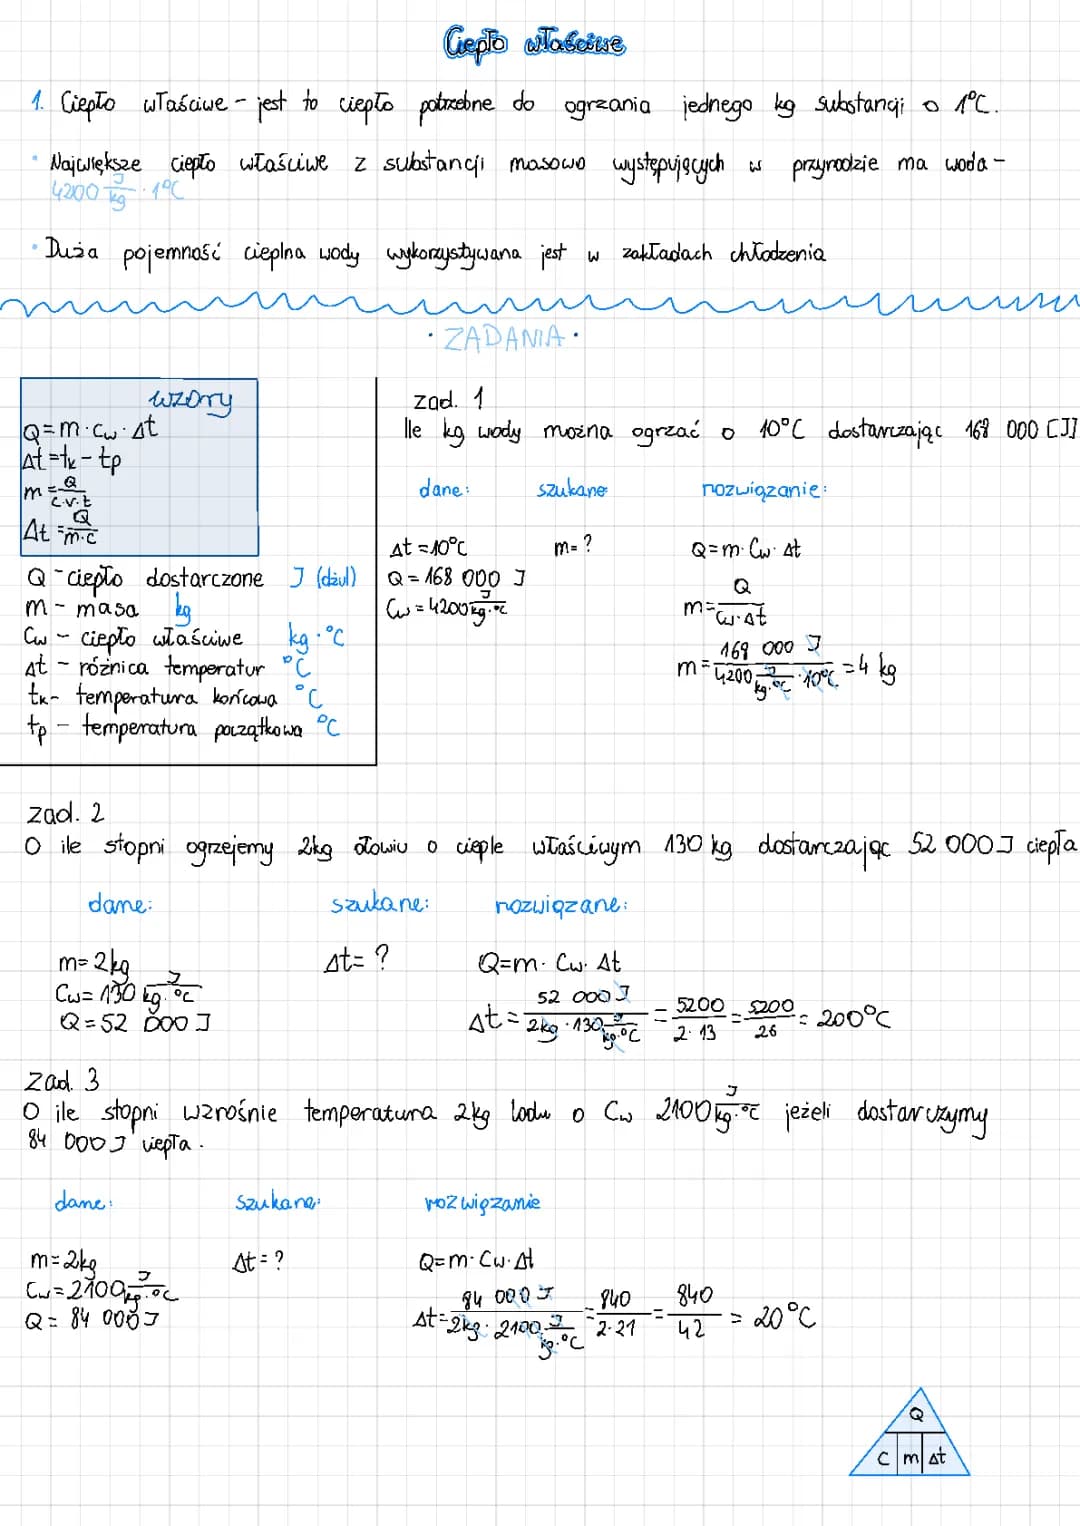 Ciepło właściwe
1. Ciepło właściwe - jest to ciepło potrzebne do ogrzania jednego kg substancji o 1°C.
• Największe ciepło właściwe z substancji masowo występujących w przyrodzie ma woda -
4200 J/kg · 1°C
• Duża pojemność cieplna wody wykorzystywana jest w zakładach chłodzenia
· ZADANIA ·
wzory
Q=m·Cw·Δt
Δt=tk-tp
m=Q/c.v.t
Δt=Q/m·c
Q - ciepło dostarczone J (dżul)
m - masa kg
Cw - ciepło właściwe kg·°C
Δt - różnica temperatur °C
tk - temperatura końcowa °C
tp - temperatura początkowa °C
zad. 1
Ile kg wody można ogrzać o 10°C dostarczając 168 000 [J]
dane: szukane rozwiązanie:
Δt=10°C m=? Q=m·Cw·Δt
Q=168 000 J m=Q/Cw·Δt
Cw=4200 J/kg·°C
m=168 000 J/4200 J/kg·°C·10°C=4 kg
zad. 2
O ile stopni ogrzejemy 2kg ołowiu o cieple właściwym 130 kg dostarczając 52 000J ciepła
dane: szukane: rozwiązane:
m=2kg Δt=? Q=m·Cw·Δt
Cw=130 J/kg·°C
Q=52 000 J
Δt=52 000J/2kg·130 J/kg·°C=5200/2·13=5200/26=200°C
Zad. 3
O ile stopni wzrośnie temperatura 2kg lodu o Cw 2100 J/kg·°C jeżeli dostarczymy
84 000J ciepła.
dane: szukane: rozwiązanie
m=2kg Δt=? Q=m·Cw·Δt
Cw=2100 J/kg·°C
Q=84 000J
Δt=84 000 J/2kg·2100 J/kg·°C=840/2·21=840/42=20°C
Q
c m Δt